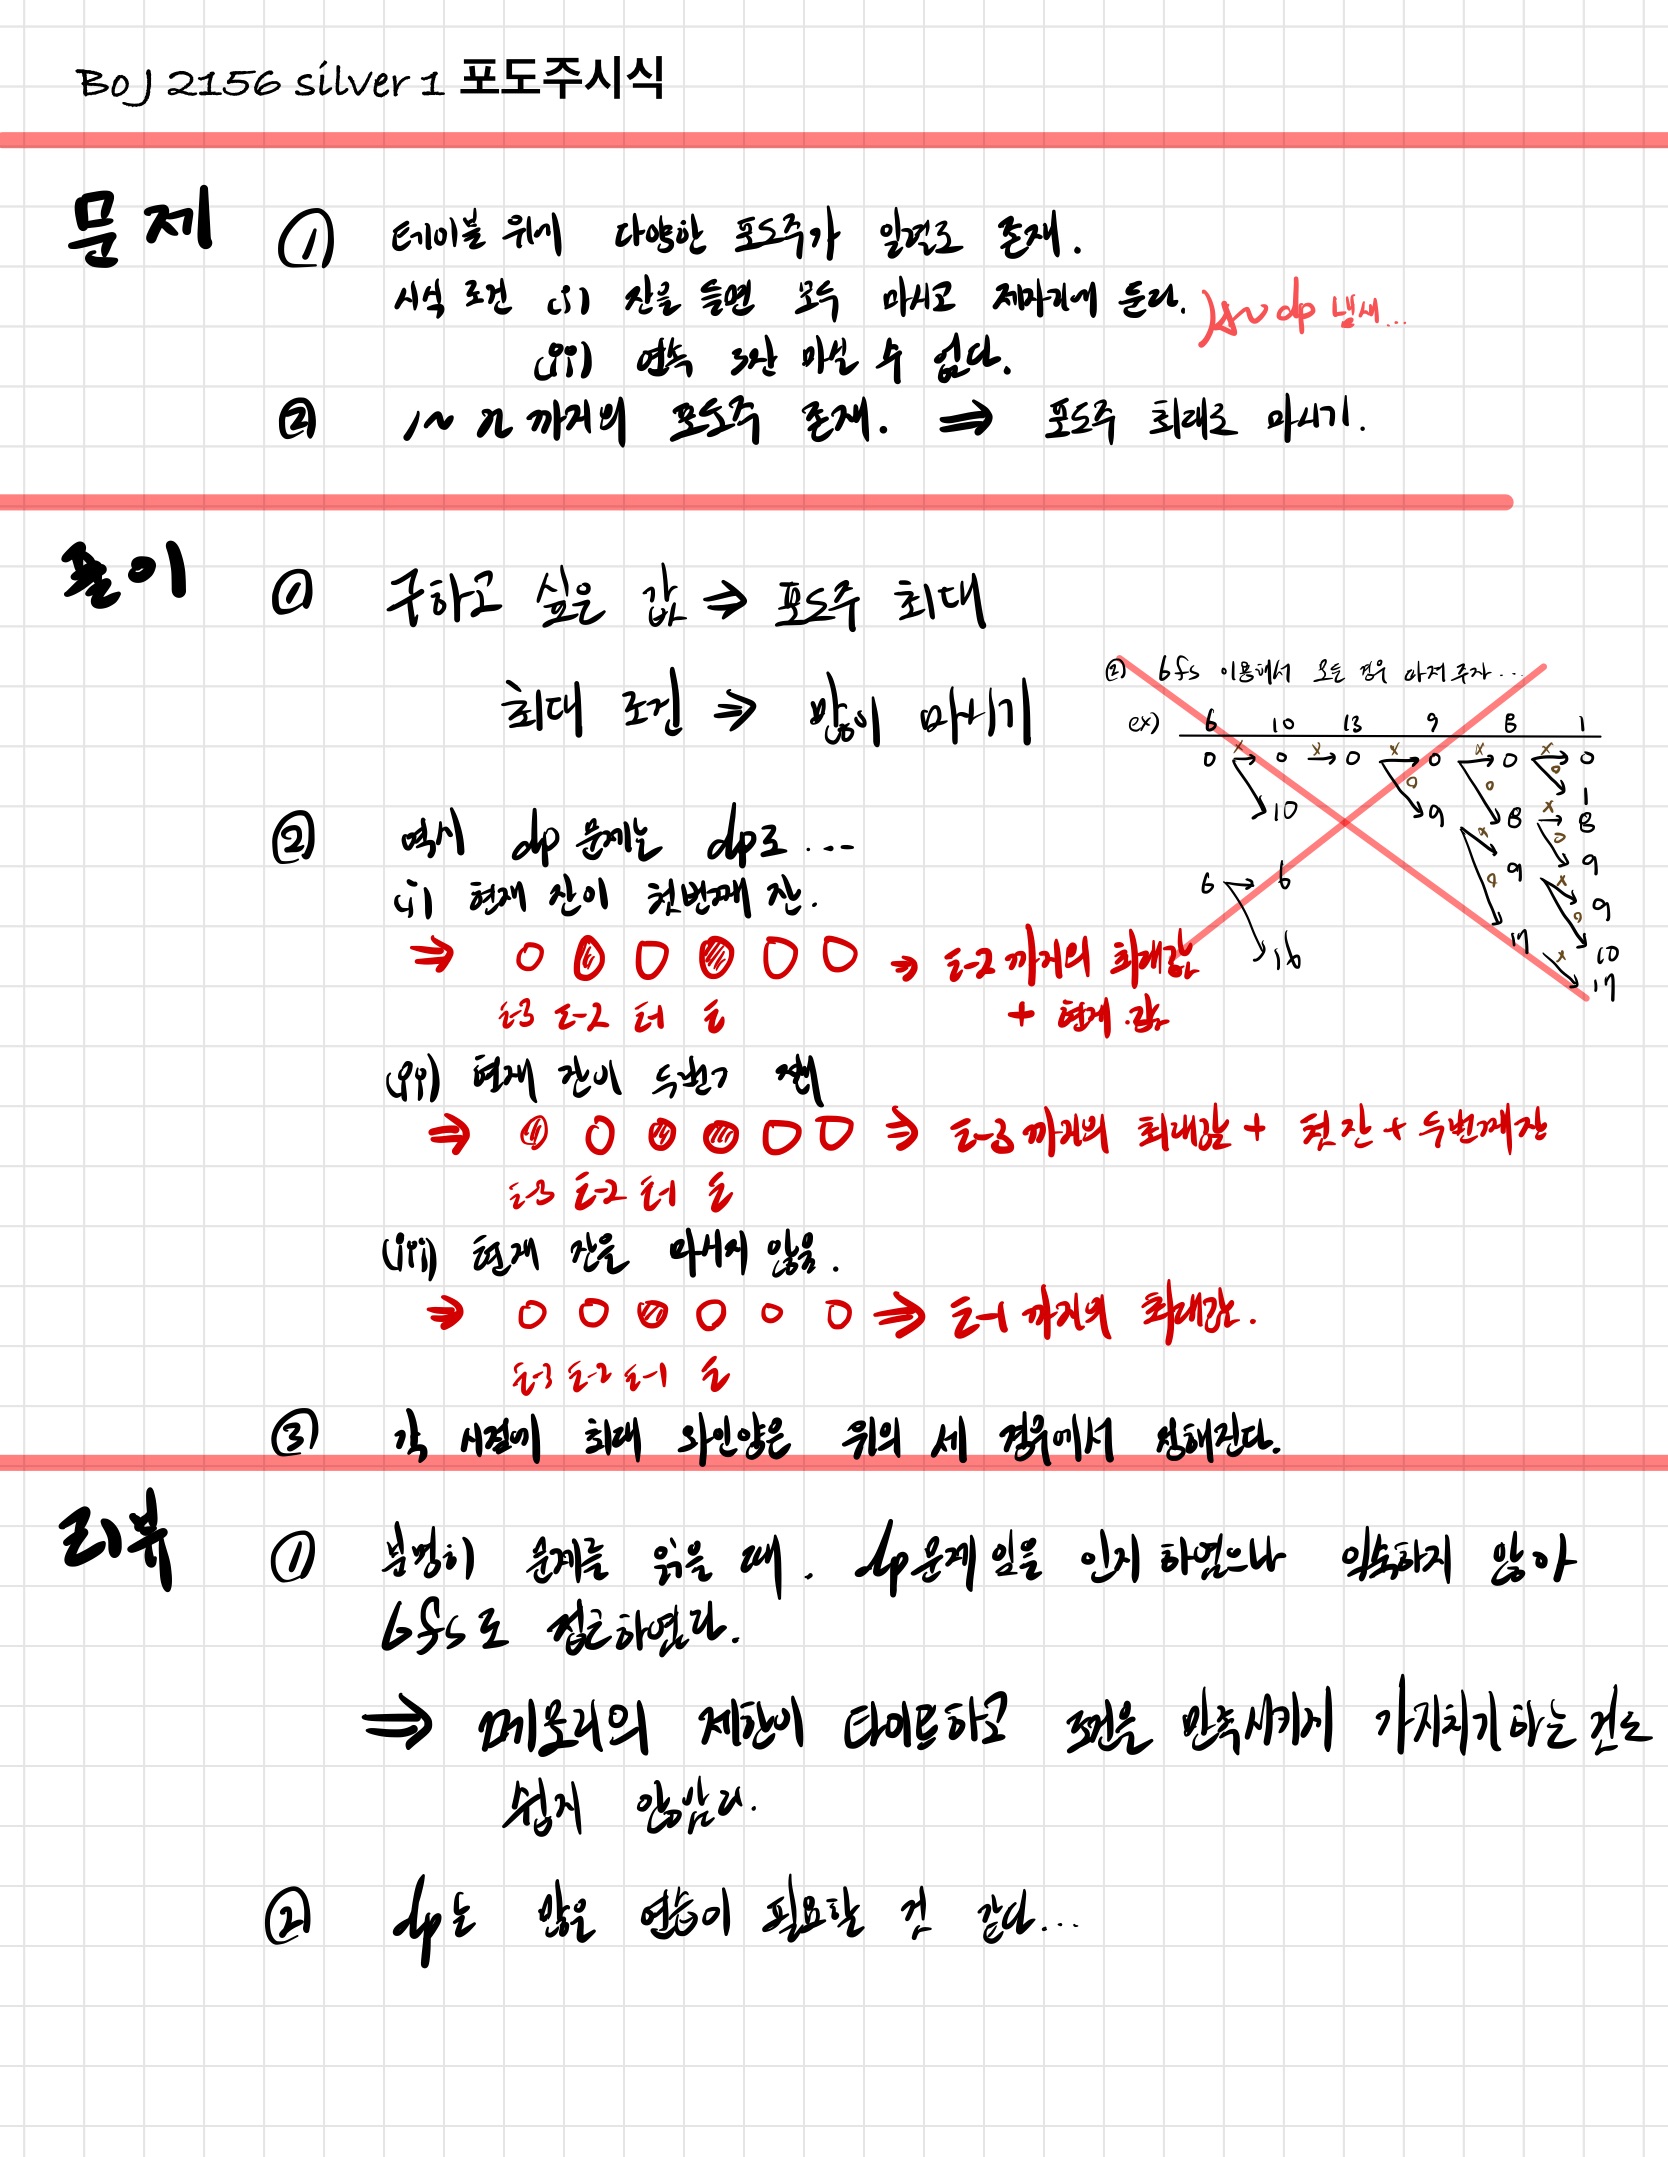 BOJ 2156 silver 1 포도주시식
문제
① 테이블 위에 다양한 포도주가 일렬로 존재.
시식 조건 (i) 잔을 들면 모두 마시고 제자리에 둔다.
dp 냄새...
(ii) 연속 3잔 마실 수 없다.
② 1~n까지의 포도주 존재. ⇒ 포도주 최대로 마시기.
풀이
① 구하고 싶은 값 ⇒ 포도주 최대
최대 조건 ⇒ 많이 마시기
② bfs 이용해서 모든 경우 따져주자...
ex) 6 10 13 9 8 1
0 x 0 x 0 x 0 x 0 x 0
10 0 9 0 8 0 1
x 8
6 6 x 9 0 9
16 0 17 x 9
0 10
x 17
② 역시 dp 문제는 dp로...
(i) 현재 잔이 첫번째 잔.
⇒ t-2까지의 최대값
+ 현재 값
t-3 t-2 t-1 t
(ii) 현재 잔이 두번째 잔
⇒ t-3까지의 최대값 + 첫 잔 + 두번째 잔
t-3 t-2 t-1 t
(iii) 현재 잔을 마시지 않음.
⇒ t-1까지의 최대값.
t-3 t-2 t-1 t
③ 각 시점에 최대 와인양은 위의 세 경우에서 정해진다.
리뷰
① 분명히 문제를 읽을 때. dp문제임을 인지하였으나 익숙하지 않아
bfs로 접근하였다.
⇒ 메모리의 제한이 타이트하고 조건을 만족시키게 가지치기하는 건도
쉽지 않았다.
② dp는 많은 연습이 필요할 것 같다...